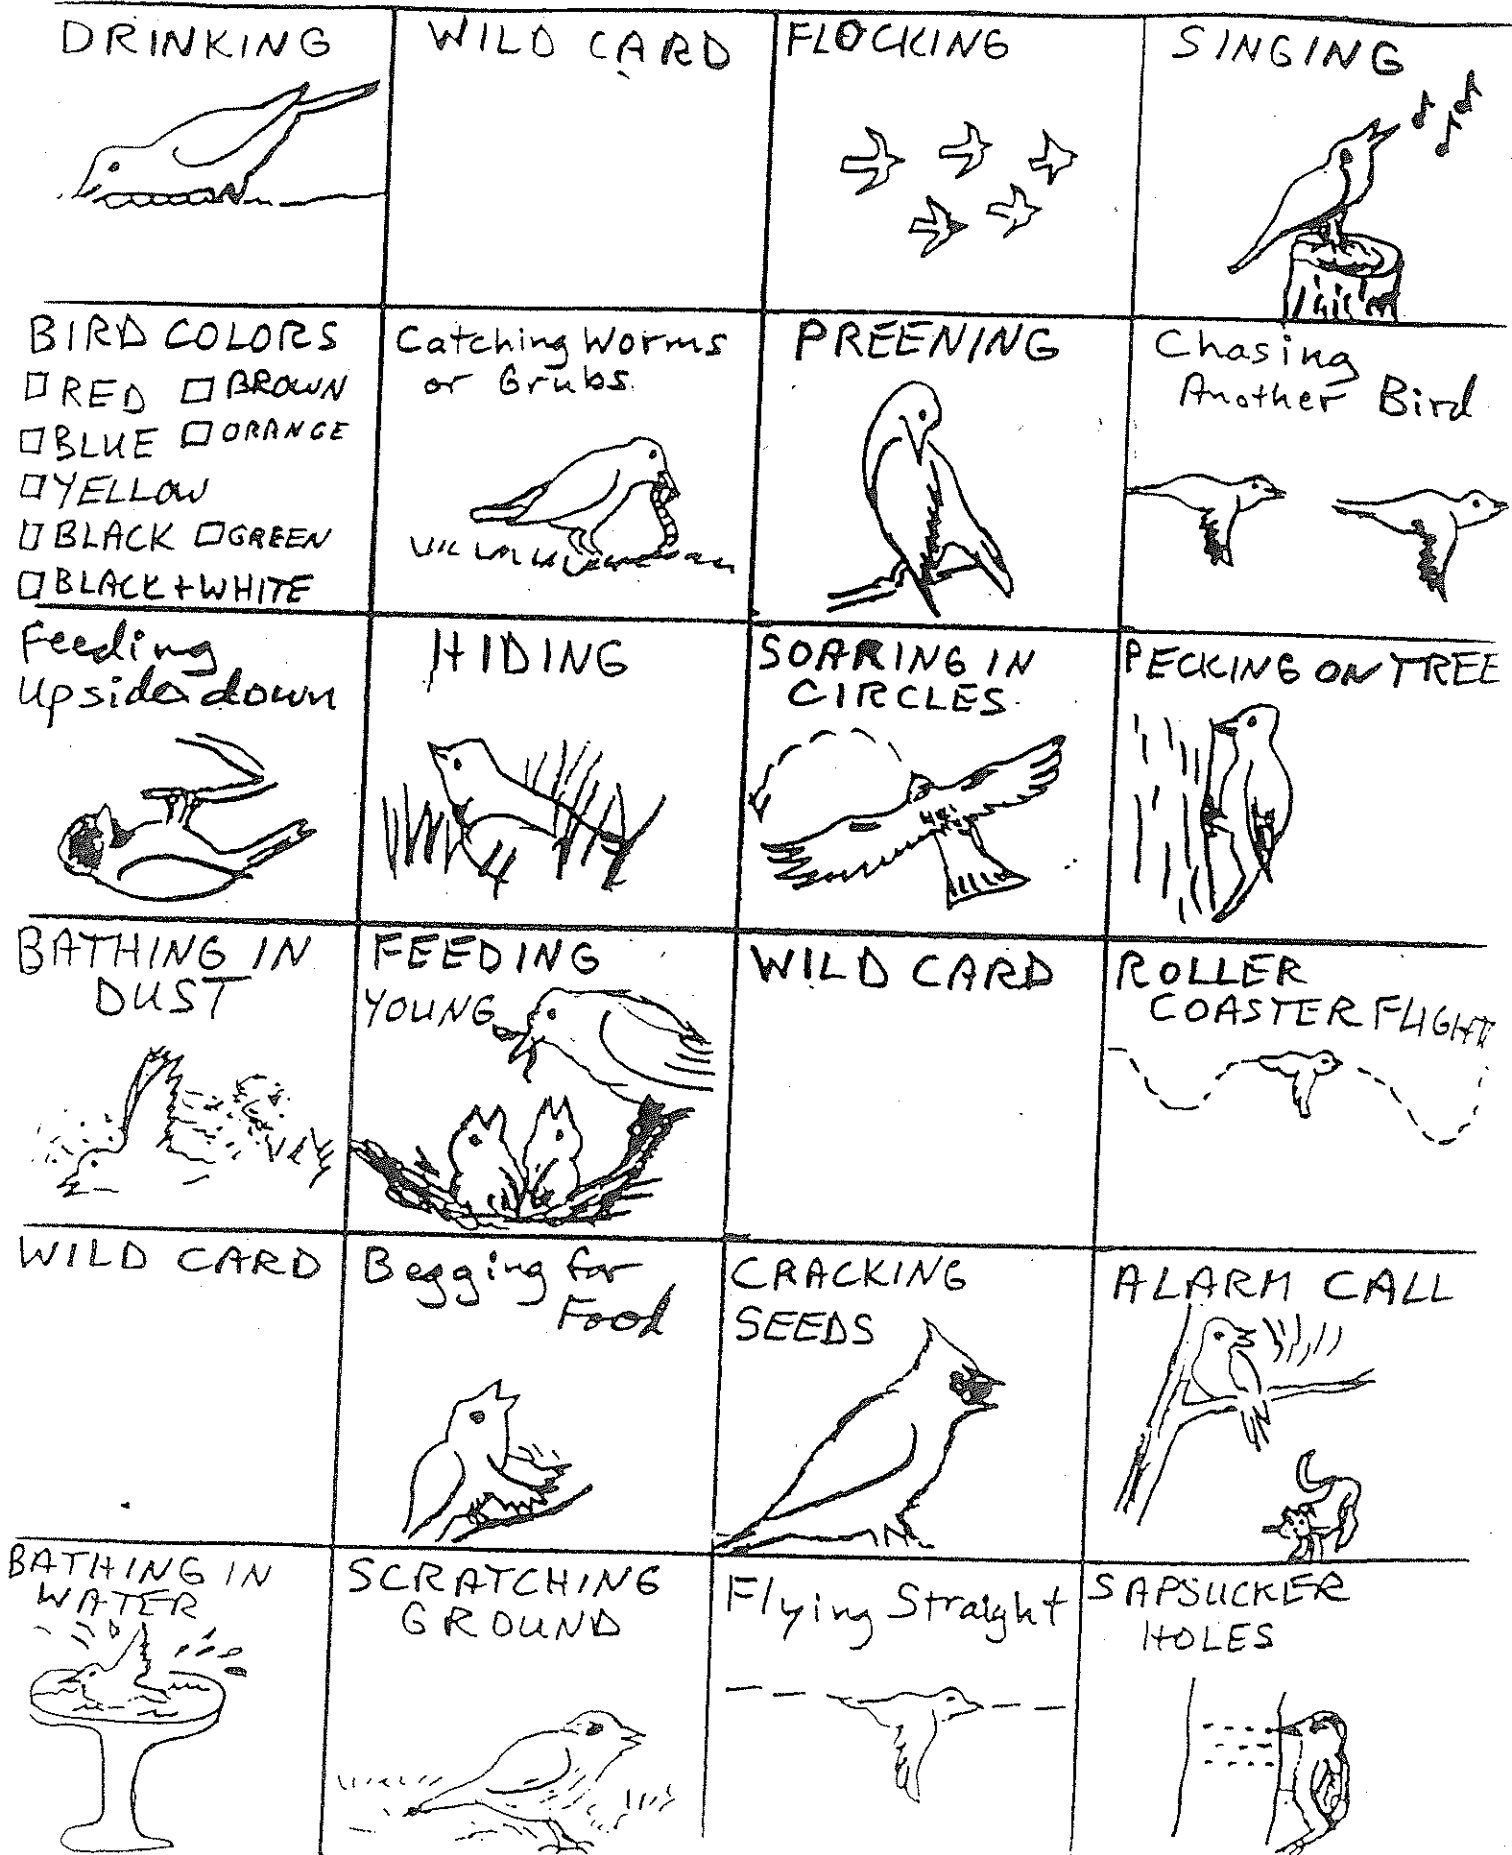 DRINKING
WILD CARD
FLOCKING
SINGING
BIRD COLORS
RED BROWN
BLUE ORANGE
YELLOW
BLACK GREEN
BLACK + WHITE
Catching Worms
or Grubs
PREENING
Chasing
Another Bird
Feeding
Upside down
HIDING
SOARING IN
CIRCLES
PECKING ON TREE
BATHING IN
DUST
FEEDING
YOUNG
WILD CARD
ROLLER
COASTER FLIGHT
WILD CARD
Begging for
Food
CRACKING
SEEDS
ALARM CALL
BATHING IN
WATER
SCRATCHING
GROUND
Flying Straight
SAPSUCKER
HOLES